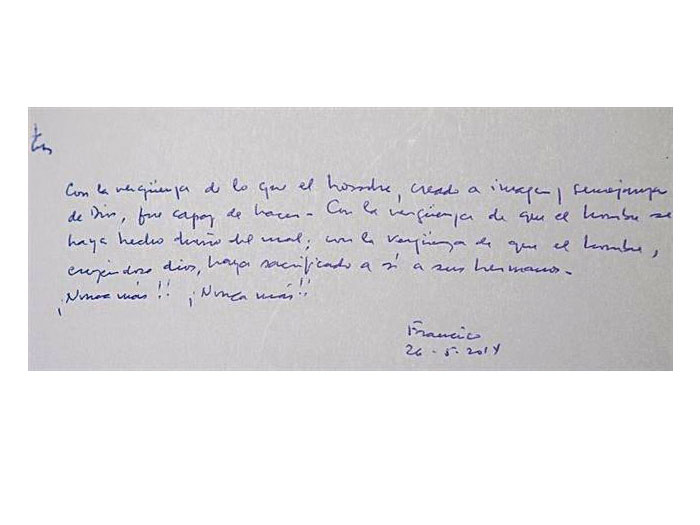 Con la vergüenza de lo que el hombre, creado a imagen y semejanza
de Dios, fue capaz de hacer - Con la vergüenza de que el hombre se
haya hecho dueño del mal; con la vergüenza de que el hombre,
creyéndose dios, haya sacrificado a sí a sus hermanos -
¡Nunca más!! ¡Nunca más!!
Francisco
26-5-2014